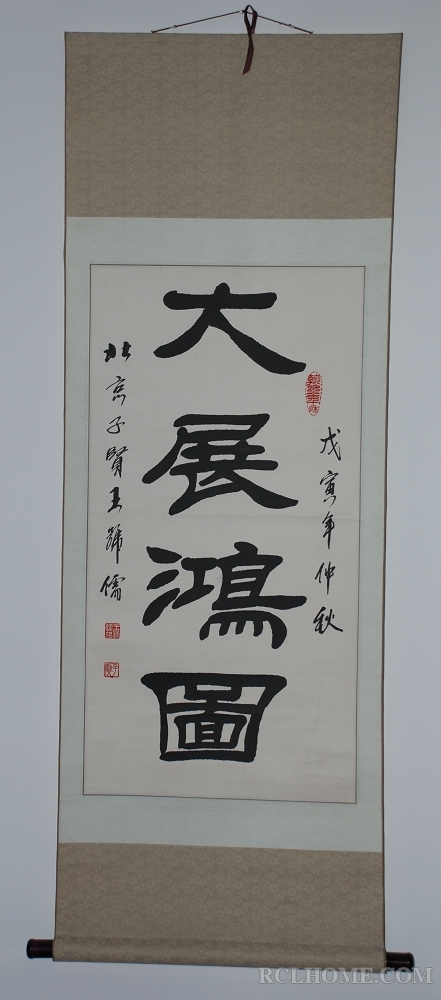 大展鴻圖
戊寅年仲秋
北京子賢王歸儒
RCLHOME.COM